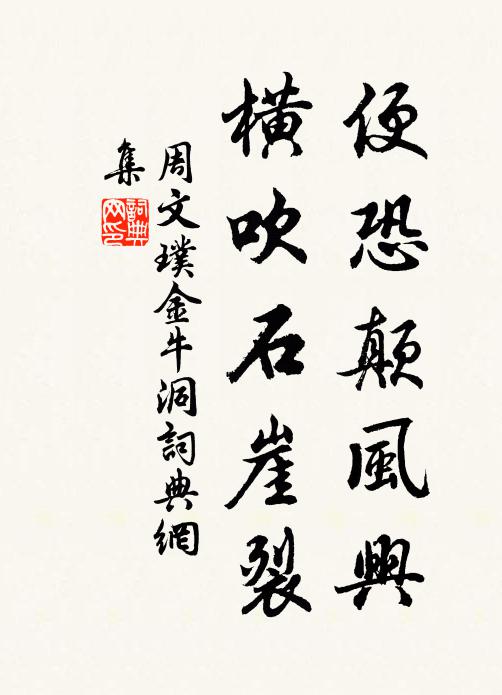 便恐顛風興
橫吹石崖裂
周文璞金牛洞詞典網
集
詞典网印